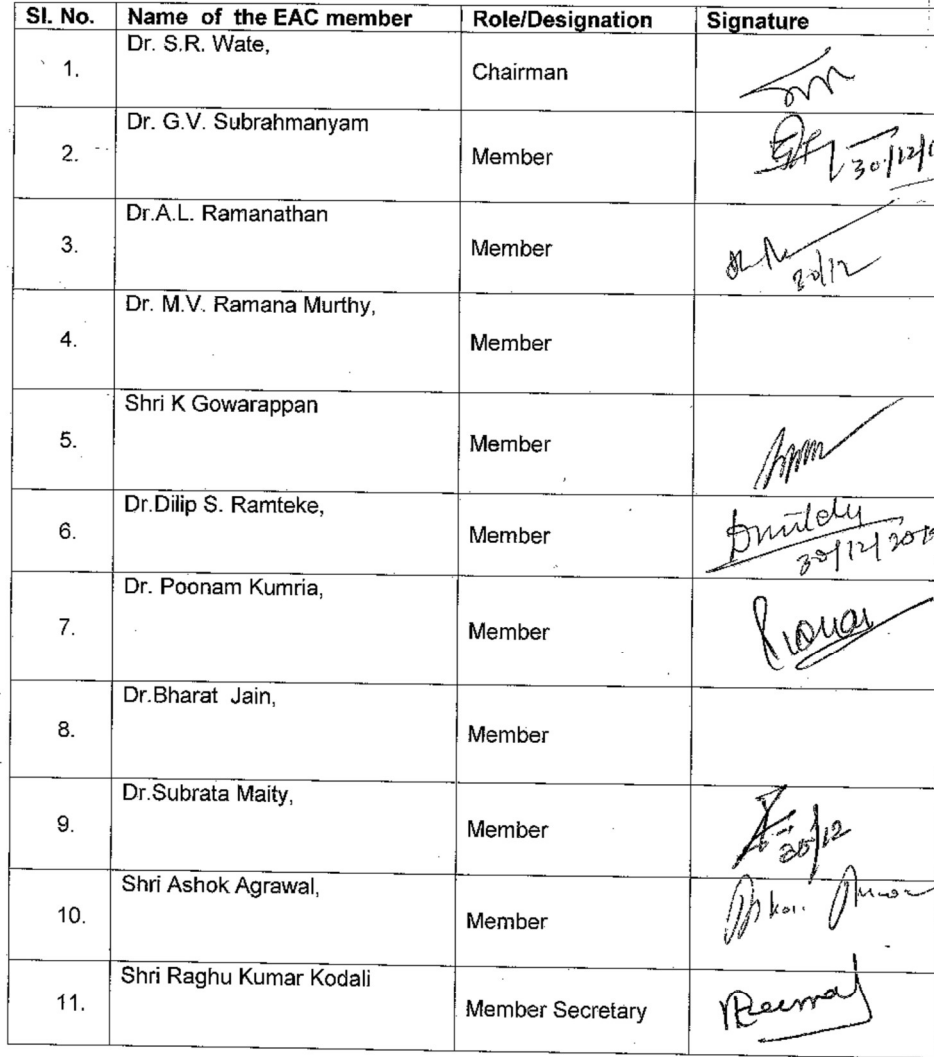 Sl. No. Name of the EAC member Role/Designation Signature
1. Dr. S.R. Wate, Chairman
2. Dr. G.V. Subrahmanyam Member 30/12/1
3. Dr.A.L. Ramanathan Member 30/12
4. Dr. M.V. Ramana Murthy, Member
5. Shri K Gowarappan Member
6. Dr.Dilip S. Ramteke, Member 30/12/201
7. Dr. Poonam Kumria, Member
8. Dr.Bharat Jain, Member
9. Dr.Subrata Maity, Member 30/12
10. Shri Ashok Agrawal, Member
11. Shri Raghu Kumar Kodali Member Secretary